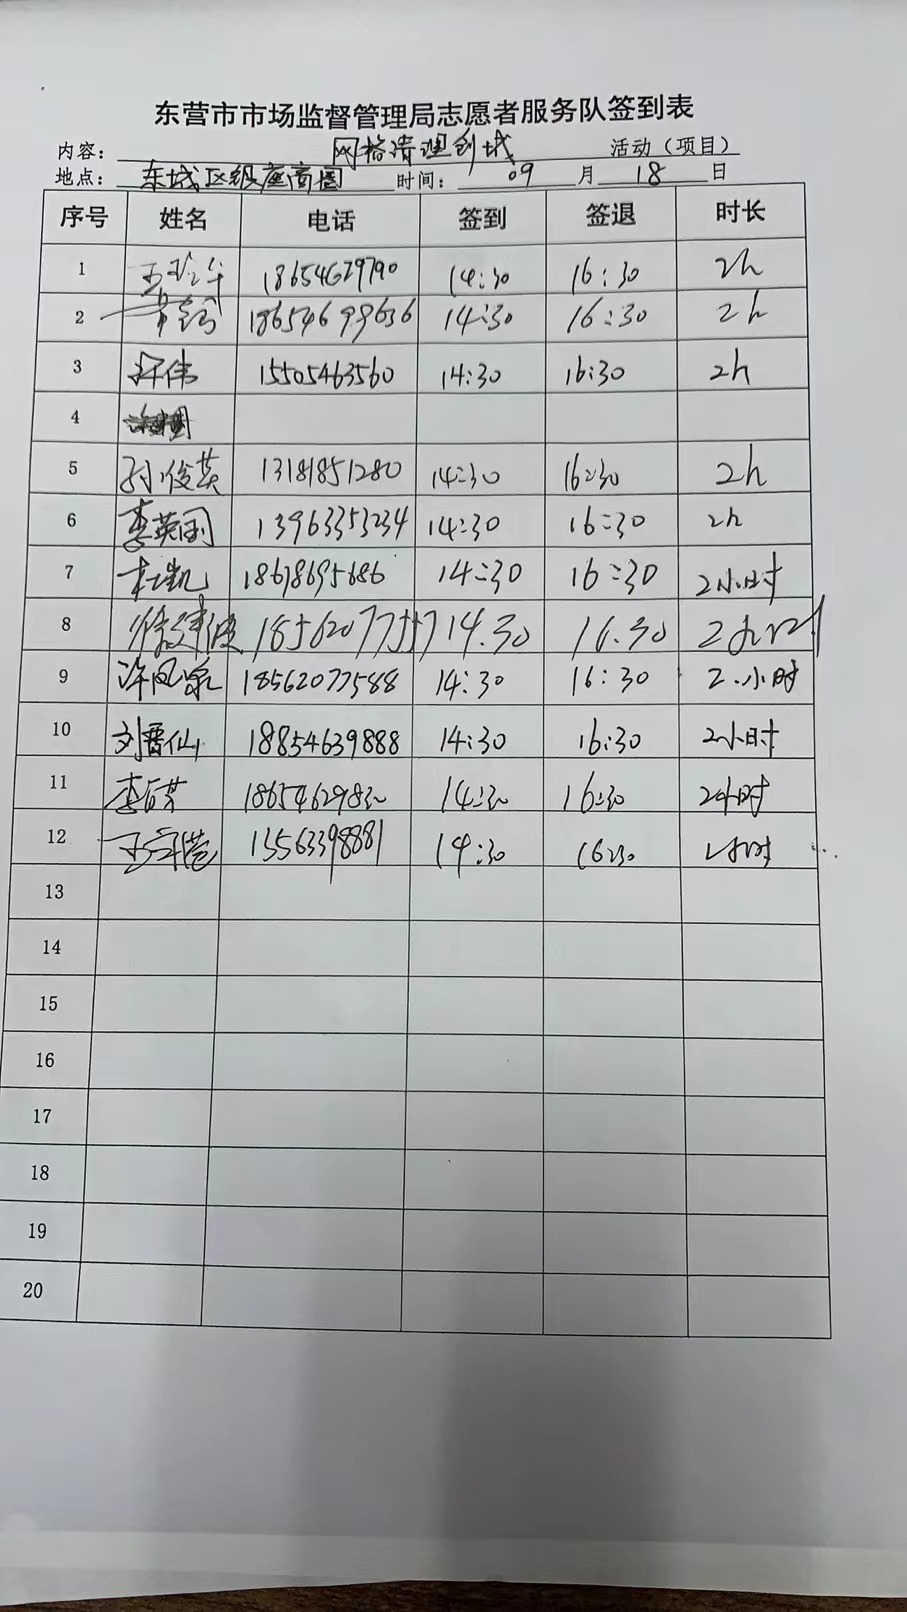 东营市市场监督管理局志愿者服务队签到表
内容： 网格清理创城 活动（项目）
地点： 东城区银座商圈 时间： 09 月 18 日
序号 姓名 电话 签到 签退 时长
1 18654629790 14:30 16:30 2h
2 18654699636 14:30 16:30 2h
3 15505463560 14:30 16:30 2h
4
5 孙俊英 13181851280 14:30 16:30 2h
6 李英国 13963353234 14:30 16:30 2h
7 杜凯 18678695686 14:30 16:30 2小时
8 徐建波 14.30 16.30 2小时
9 许凤泉 18562077588 14:30 16:30 2.小时
10 刘晋仙 18854639888 14:30 16:30 2小时
11 14:30 16:30 2小时
12 13563398881 14:30 16:30 2小时
13
14
15
16
17
18
19
20